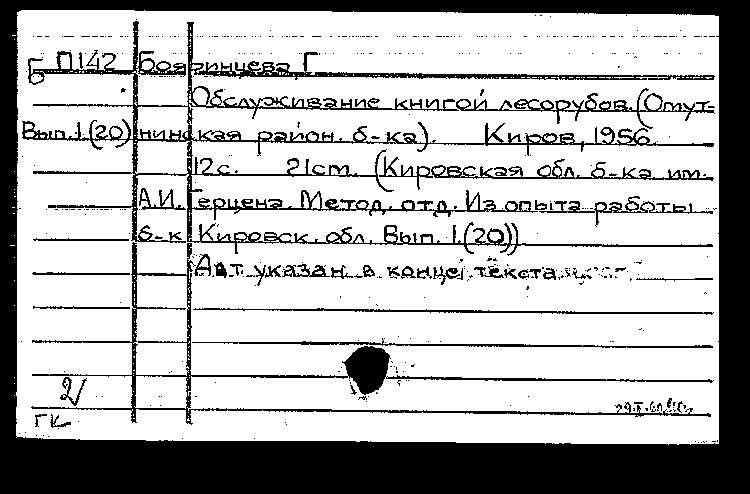 Б П142 Бояринцева, Г.
Обслуживание книгой лесорубов. (Омут-
Вып. 1. (20) нинская район. б-ка). Киров, 1956.
12с. 21см. (Кировская обл. б-ка им.
А.И. Герцена. Метод. отд. Из опыта работы
б-к Кировск. обл. Вып. 1. (20))
Авт. указан в конце текста
2/
ГК